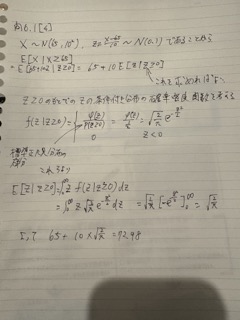 例6.1 [4]
X ~ N(65, 10²), Z = (X-65)/10 ~ N(0,1) であることから
E[X | X ≥ 65]
= E[65+10Z | Z≥0] = 65 + 10 E[Z | Z≥0]
これを
Z≥0のもとでの Zの条件付き分布の確率密度関数を考える
f(z | Z≥0) = φ(z)/P(Z≥0) = φ(z)/½ = √(2/π) e^(-z²/2)
0 z<0
標準正規分布の
E[Z | Z≥0] = ∫₀^∞ z f(z | Z≥0) dz
= ∫₀^∞ z √(2/π) e^(-z²/2) dz = √(2/π) [-e^(-z²/2)]₀^∞ = √(2/π)
65 + 10 × √(2/π) = 72.98